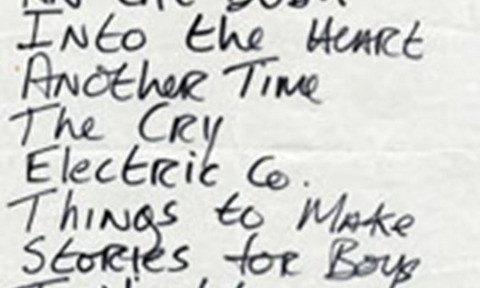 Into the HEART
Another Time
The Cry
Electric Co.
Things to Make
Stories for Boys